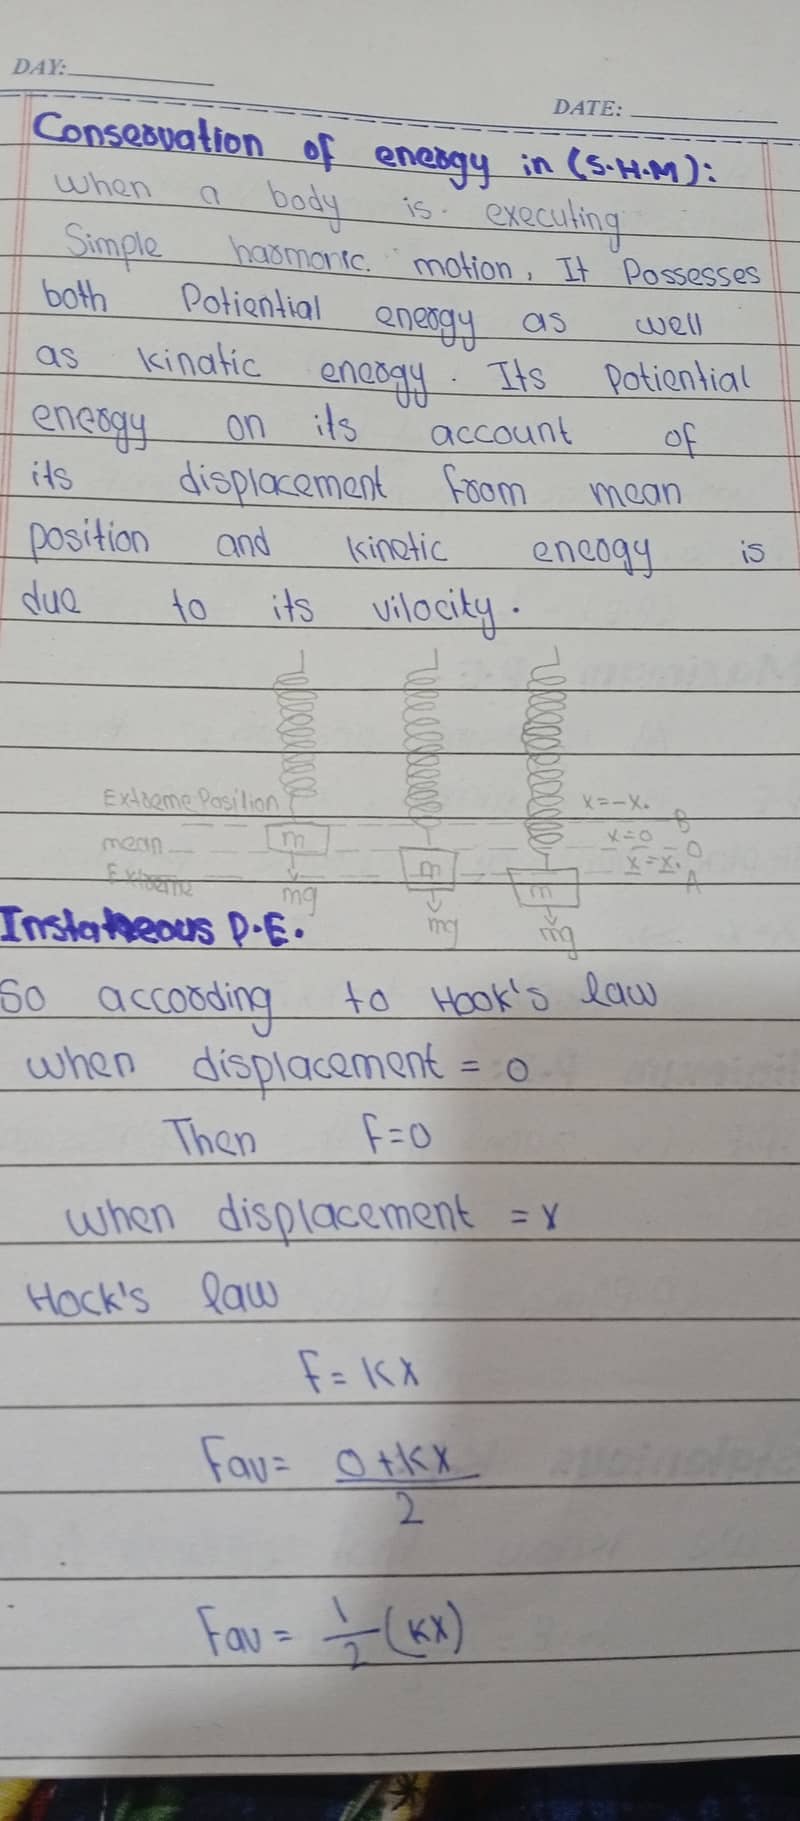 DAY:
DATE:
Conservation of energy in (S.H.M):
when a body is executing
Simple harmonic. motion, It Possesses
both Potiential energy as well
as kinatic energy. Its Potiential
energy on its account of
its displacement from mean
position and kinetic energy is
due to its vilocity.
Extreme Position x=-x.
B
mean x=0 O
Extreme x=x. A
m m m
mg mg mg
Instateous P.E.
So according to Hook's law
when displacement = 0
Then F=0
when displacement = x
Hock's law
F = Kx
Fav = 0+Kx
2
Fav = 1/2 (Kx)